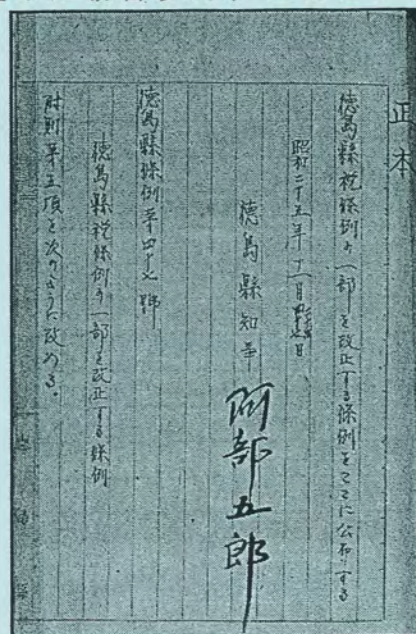 正本
徳島縣税條例の一部を改正する條例をここに公布する
昭和二十五年十一月 日
徳島縣知事
阿部五郎
徳島縣條例第四十七號
徳島縣税條例の一部を改正する條例
附則第五項を次のように改める。